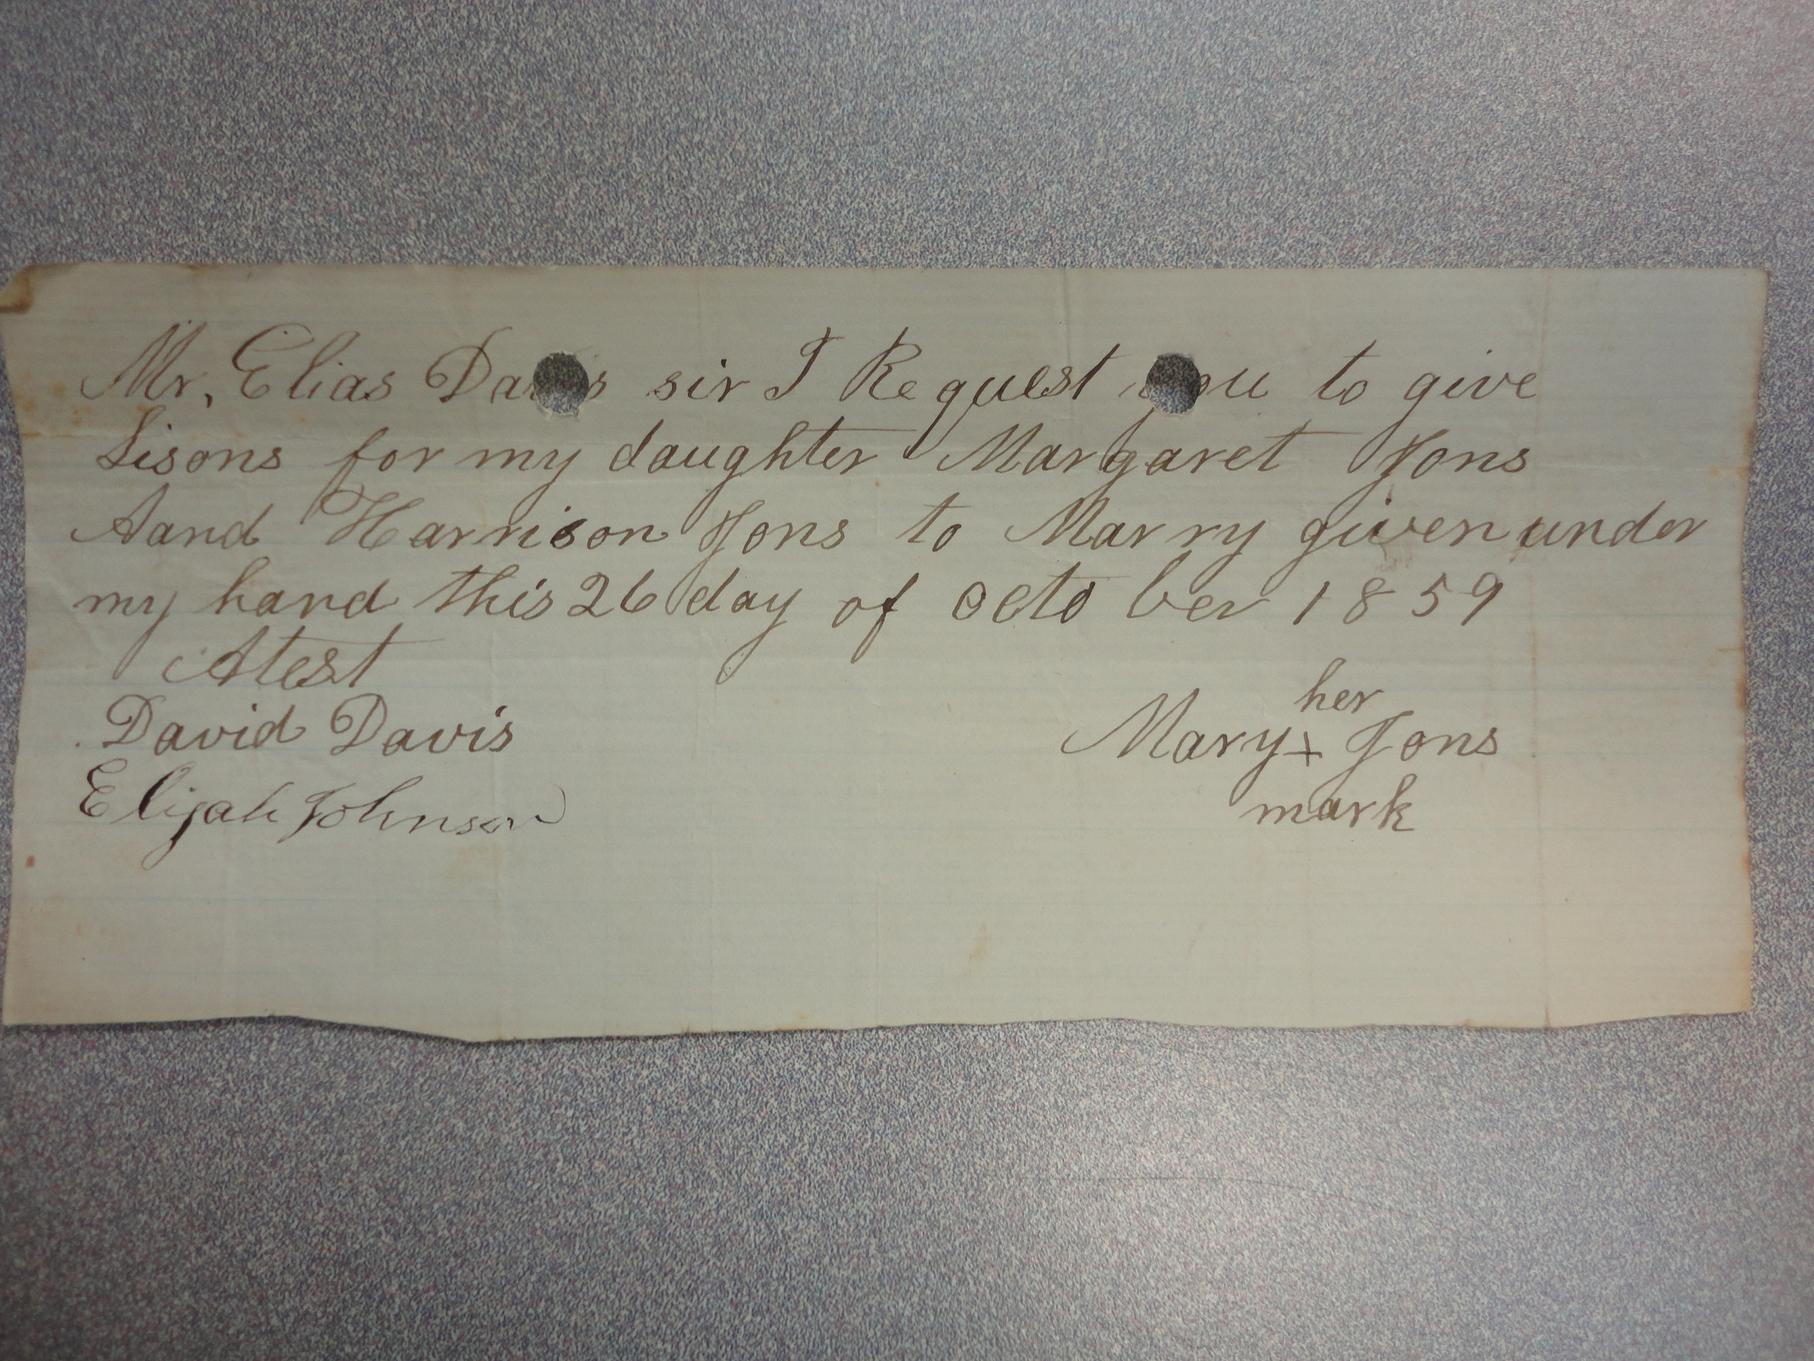 Mr, Elias Davis sir I Request you to give
Lisons for my daughter Margaret Jons
Aand Harrison Jons to Marry given under
my hand this 26 day of october 1859
Atest
David Davis
Elijah Johnson
her
Mary x Jons
mark